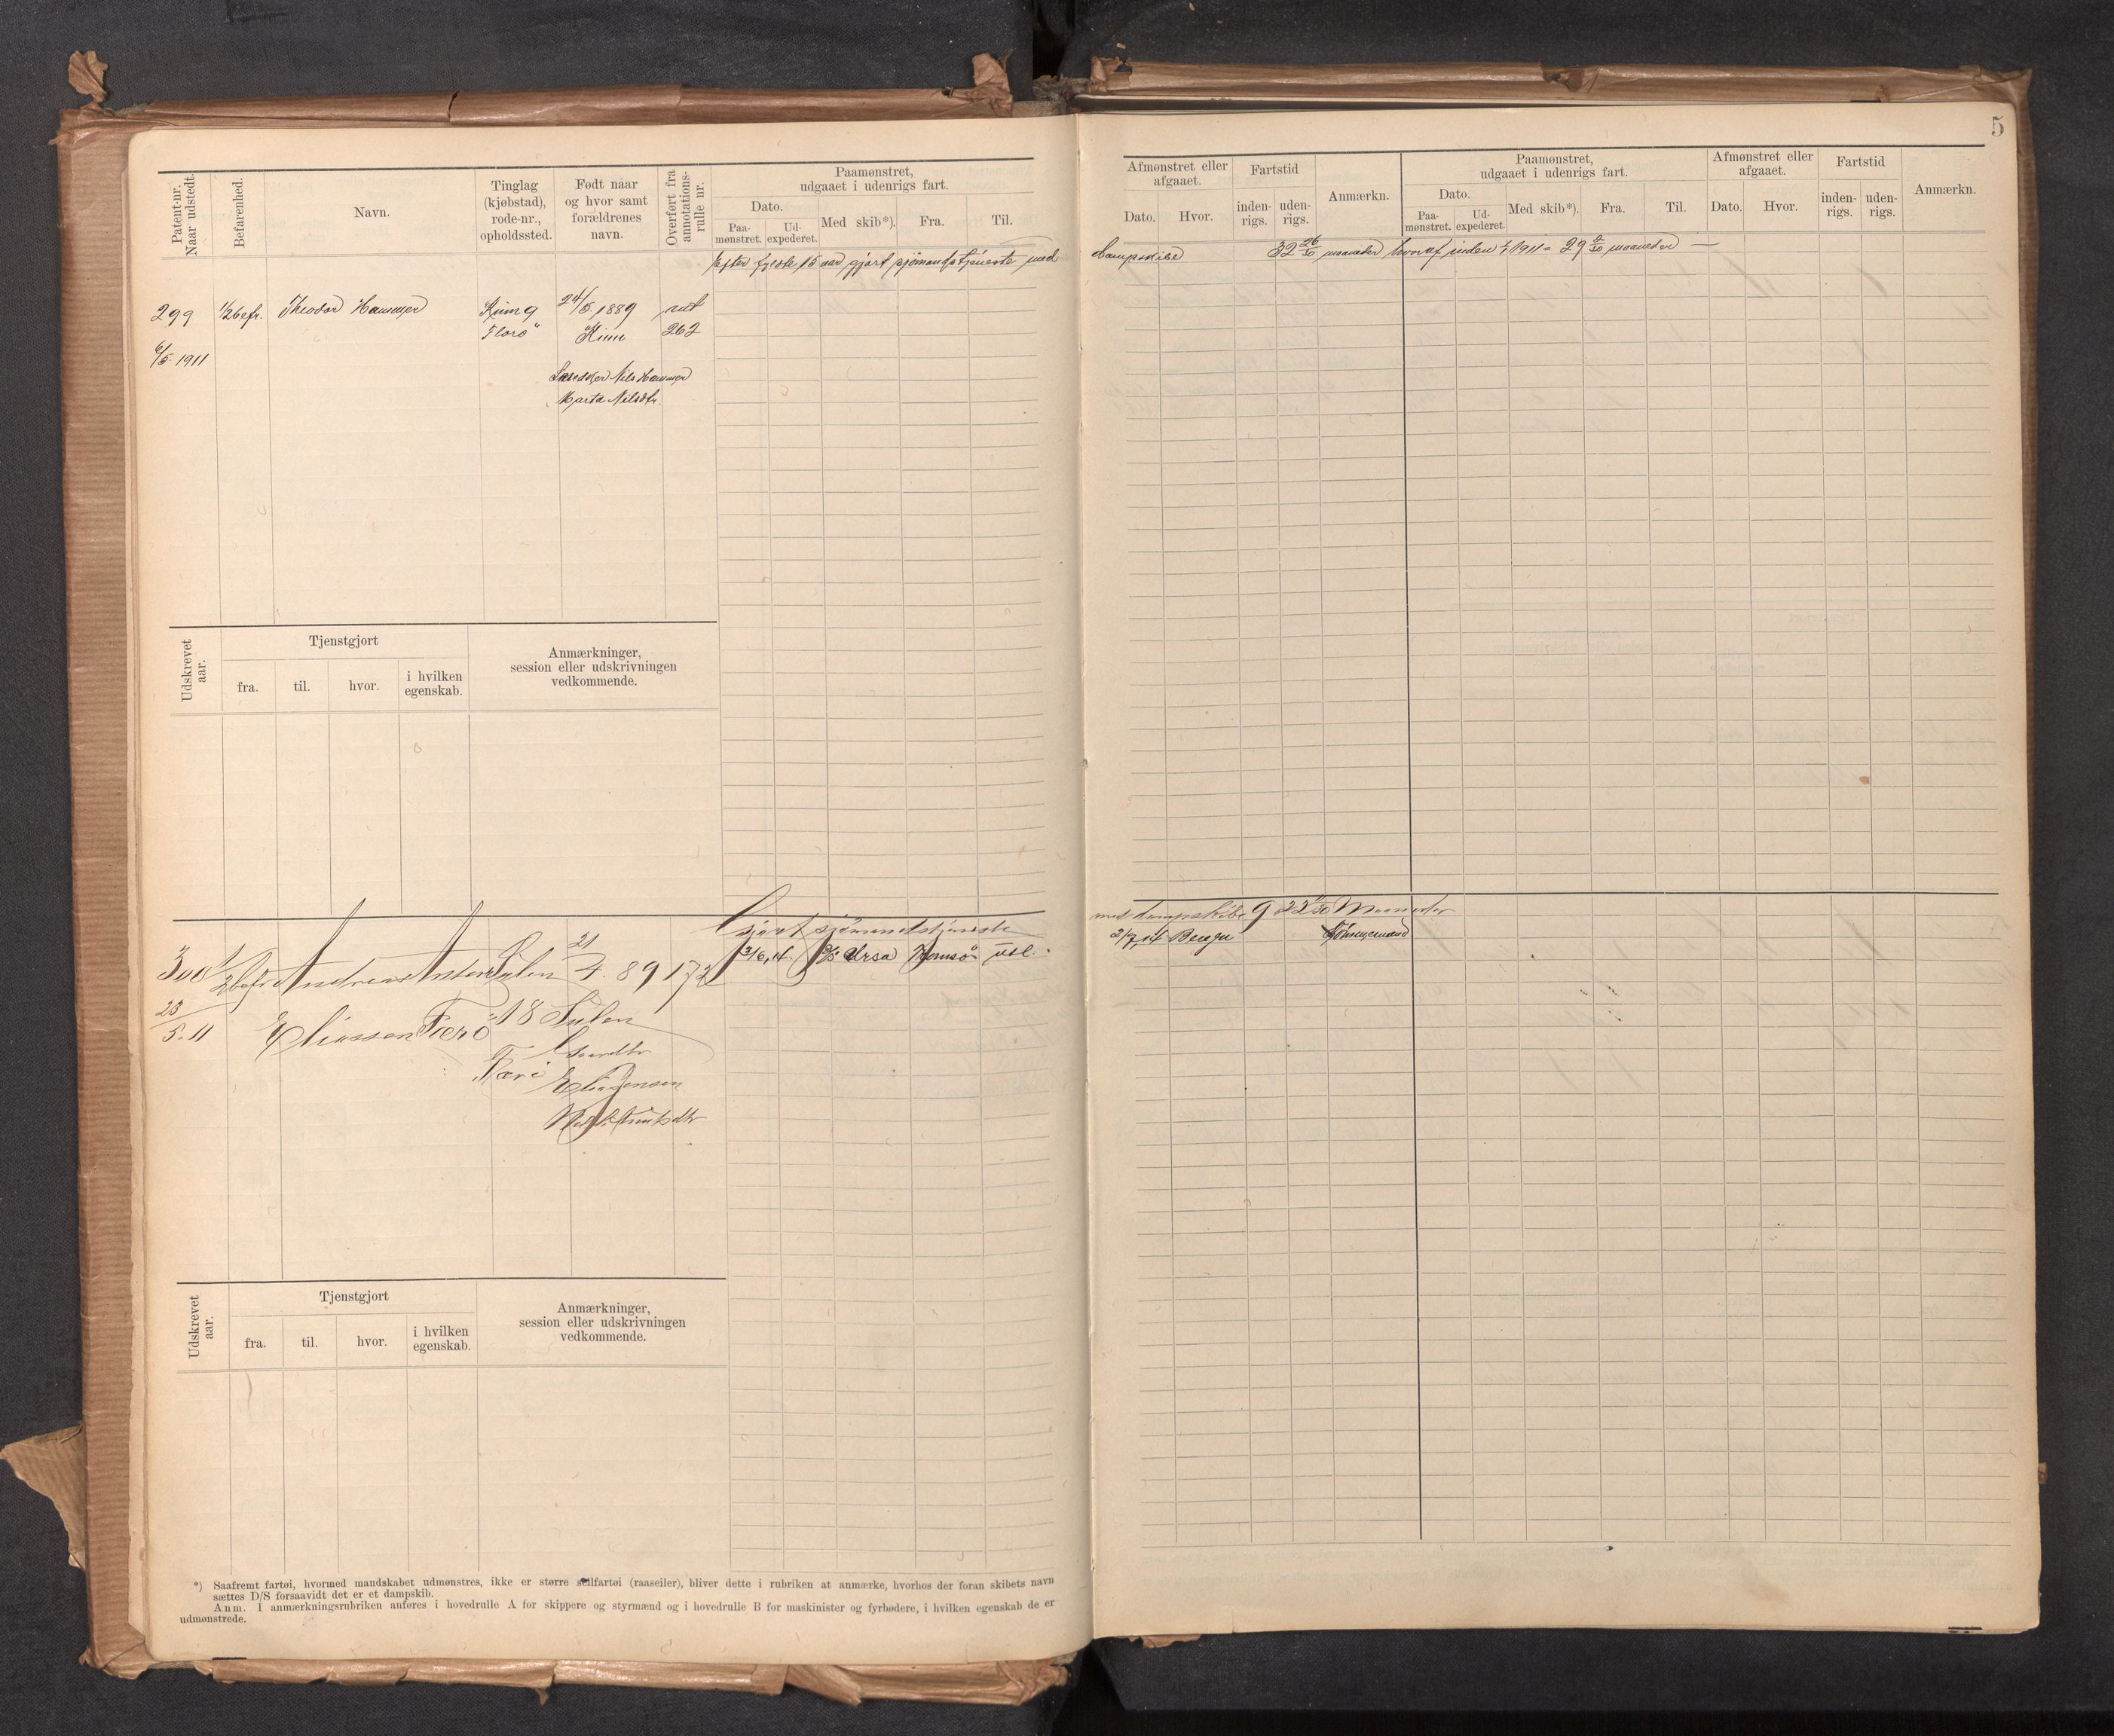 5
Patent-nr. Naar udstedt.
Befarenhed.
Navn.
Tinglag (kjøbstad), rode-nr., opholdssted.
Født naar og hvor samt forældrenes navn.
Overført fra annotations-rulle nr.
Paamønstret, udgaaet i udenrigs fart.
Dato.
Paa-mønstret.
Ud-expederet.
Med skib*).
Fra.
Til.
Afmønstret eller afgaaet.
Dato.
Hvor.
Fartstid
inden-rigs.
uden-rigs.
Anmærkn.
Paamønstret, udgaaet i udenrigs fart.
Dato.
Paa-mønstret.
Ud-expederet.
Med skib*).
Fra.
Til.
Afmønstret eller afgaaet.
Dato.
Hvor.
Fartstid
inden-rigs.
uden-rigs.
Anmærkn.
Efter fyldte 15 aar gjort sjömandstjeneste med
dampskibe 32 26/30 maaneder hvoraf inden 1911 = 29 maaneder —
299 1/2 befr. Theodor Hammer Kinn 9 24/5 1889
Florö Kinn 262
6/5 1911
Nils Hammer
Marta Nilsdtr.
Udskrevet aar.
Tjenstgjort
fra.
til.
hvor.
i hvilken egenskab.
Anmærkninger, session eller udskrivningen vedkommende.
Gjort sjömandstjeneste
med dampskibe 9 Maaneder
300 1/2 befr Andreas Anton Sulen 21/4. 89 172
3/6, 14. D/S Ursa
2/7, 14 Bergen
23/5. 11 Eliassen Færö 18 Sulen
Udskrevet aar.
Tjenstgjort
fra.
til.
hvor.
i hvilken egenskab.
Anmærkninger, session eller udskrivningen vedkommende.
*) Saafremt fartøi, hvormed mandskabet udmønstres, ikke er større seilfartøi (raaseiler), bliver dette i rubriken at anmærke, hvorhos der foran skibets navn
sættes D/S forsaavidt det er et dampskib.
Anm. I anmærkningsrubriken anføres i hovedrulle A for skippere og styrmænd og i hovedrulle B for maskinister og fyrbødere, i hvilken egenskab de er
udmønstrede.